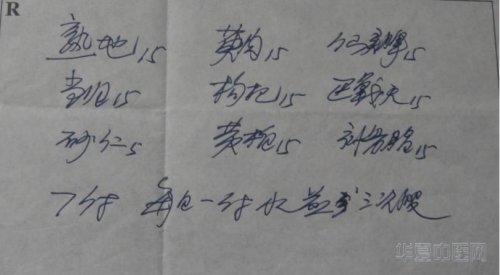 R
熟地15 萸肉15 仙灵脾15
当归15 枸杞15 巴戟天15
砂仁5 黄柏15 刘寄奴15
7付 每日一付 水煎 三次服
华夏中医网